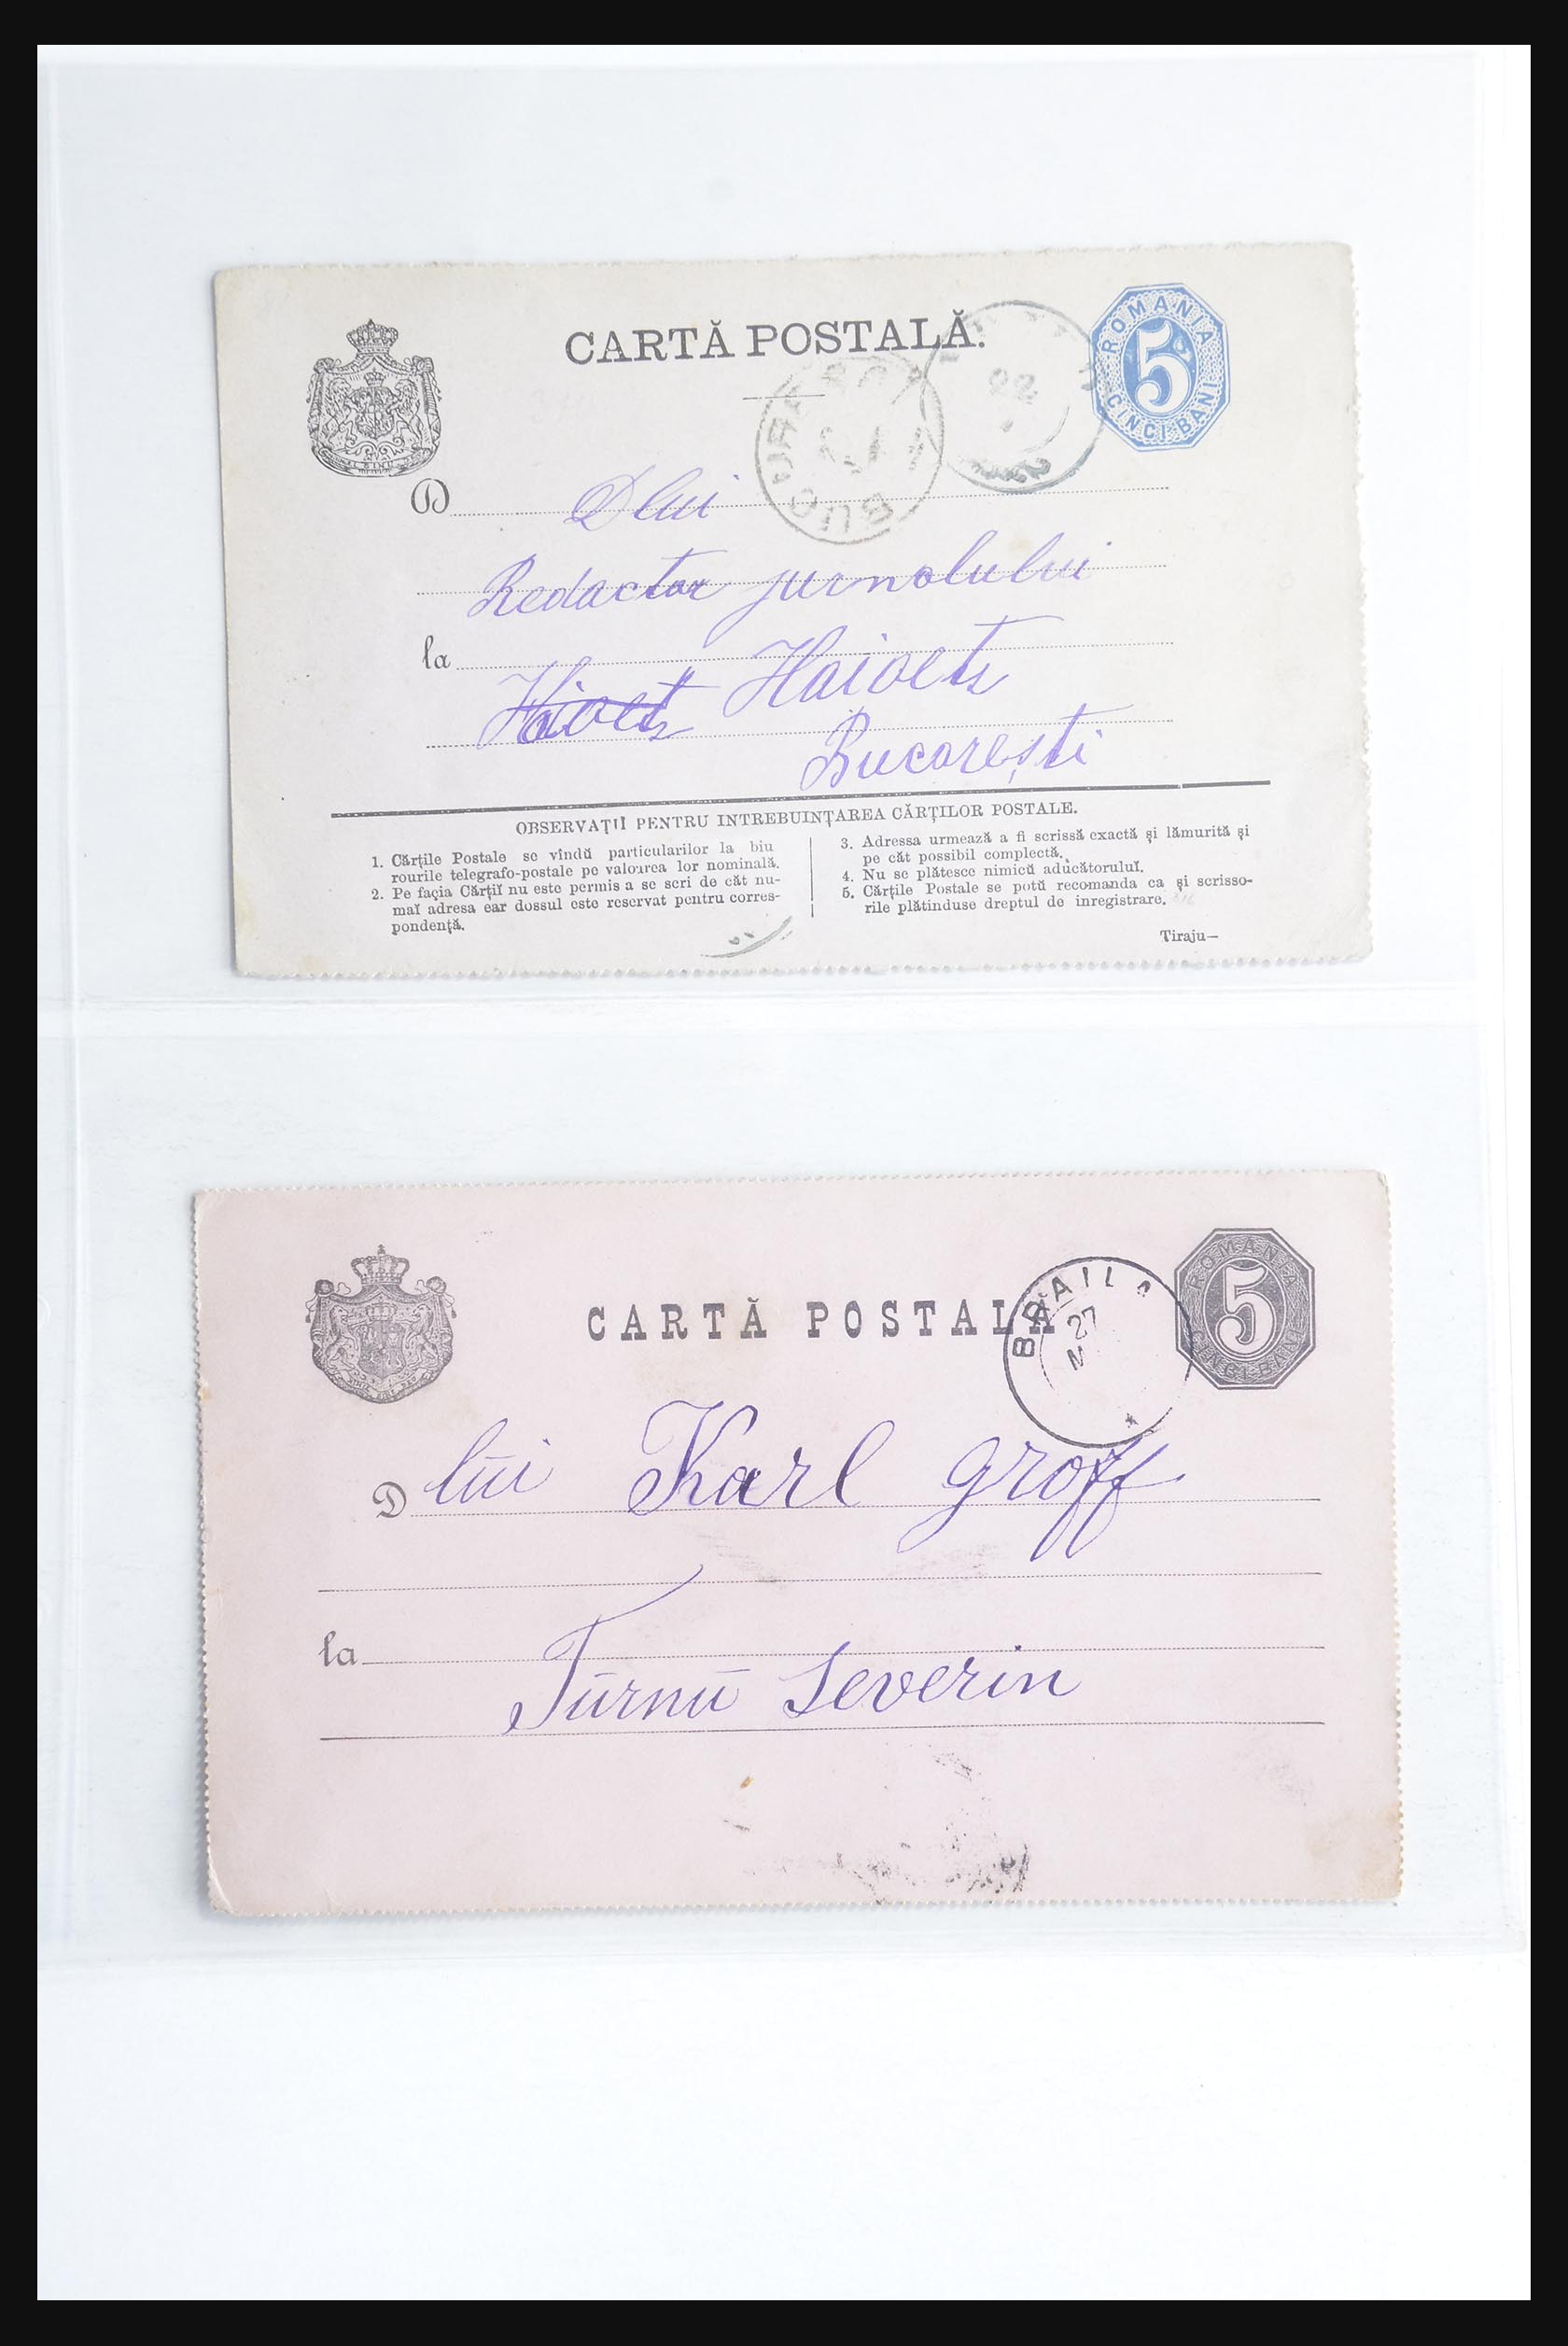 CARTĂ POSTALĂ.
ROMANIA
5
CINCI BANI
BUCURESCI
22
D Dlui
Redactor jurnolului
la
Haivets Haioets
Bucorești
OBSERVAȚIĬ PENTRU INTREBUINȚAREA CĂRȚILOR POSTALE.
1. Cărțile Postale se vîndŭ particularilor la biu
rourile telegrafo-postale pe valoarea lor nominală.
2. Pe facia Cărțiĭ nu este permis a se scri de cât nu-
maĭ adresa ear dossul este reservat pentru corres-
pondență.
3. Adressa urmează a fi scrissă exactă și lămurită și
pe cât possibil complectă.
4. Nu se plătesce nimicŭ aducătoruluĭ.
5. Cărțile Postale se potŭ recomanda ca și scrisso-
rile plătinduse dreptul de inregistrare.
Tiraju—
CARTĂ POSTALĂ
BRAILA
27
M
ROMANIA
5
CINCI BANI
D lūi Karl Groff
la
Tūrnū Severin